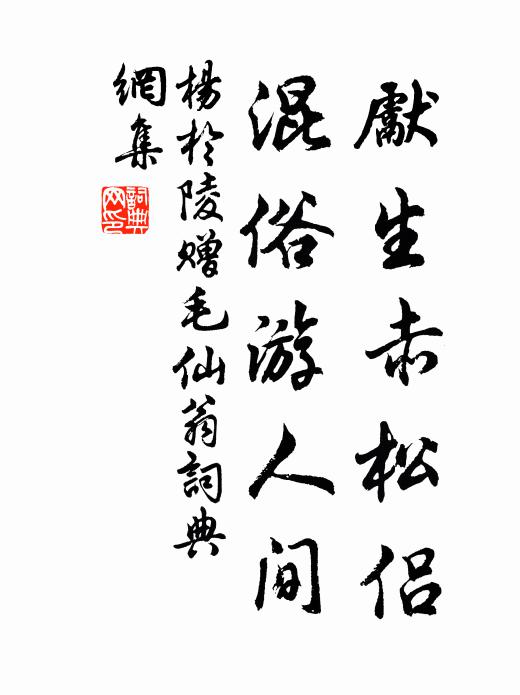 獻生赤松侣
混俗游人间
楊於陵赠毛仙翁詞典
網集
詞典网印